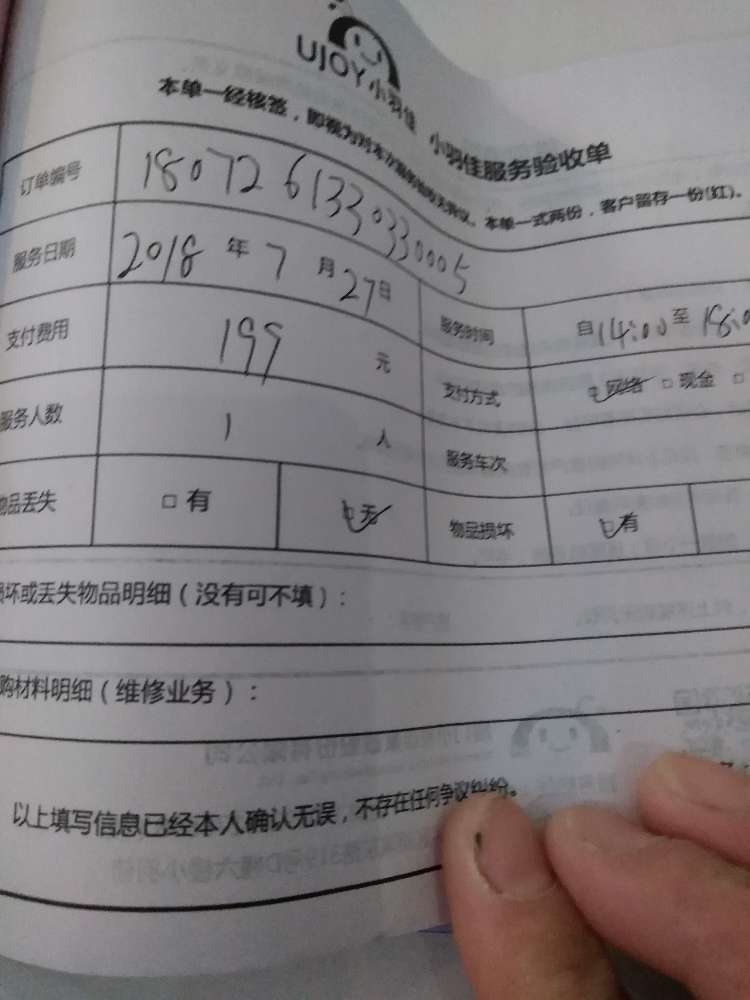 UJOY小羽佳 小羽佳服务验收单
本单一经核签，即视为对本次服务 本单一式两份，客户留存一份(红)。
订单编号 1807261330330005
服务日期 2018年7月27日 服务时间 自14:00至18:0
支付费用 199元 支付方式 网络 □现金 □
服务人数 1人 服务车次
物品丢失 □有 无 物品损坏 有
损坏或丢失物品明细（没有可不填）：
购材料明细（维修业务）：
以上填写信息已经本人确认无误，不存在任何争议纠纷。